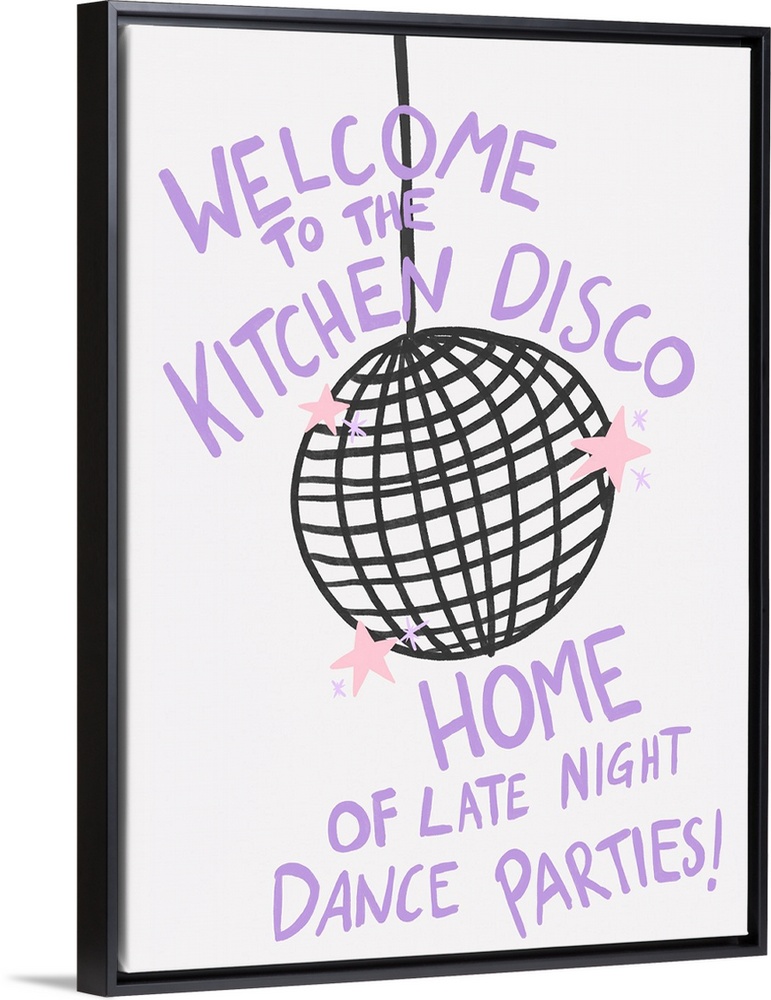 WELCOME
TO THE
KITCHEN DISCO
HOME
OF LATE NIGHT
DANCE PARTIES!